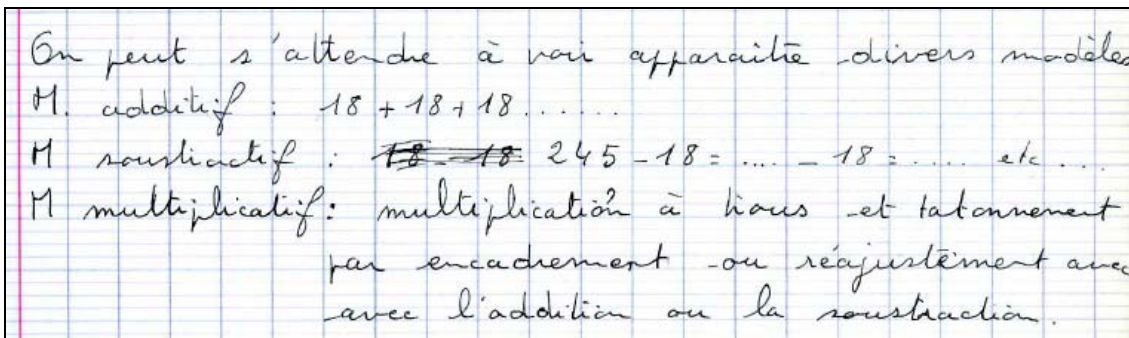 On peut s'attendre à voir apparaitre divers modèles
M. additif : 18 + 18 + 18 .......
M soustractif : 18 - 18 245 - 18 = .... - 18 = ..... etc ...
M multiplicatif : multiplication à trous et tatonnement
par encadrement ou réajustement avec
avec l'addition ou la soustraction.